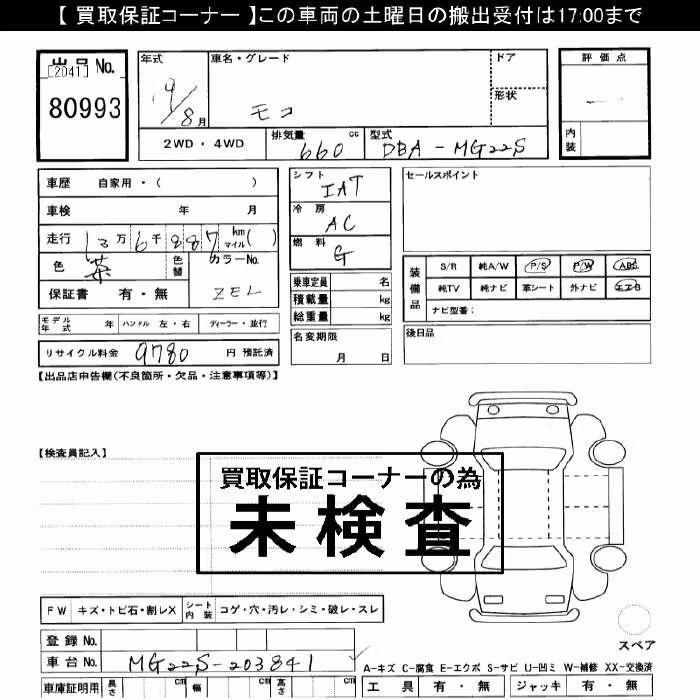 【 買取保証コーナー 】この車両の土曜日の搬出受付は17:00まで
出品No.
[2041]
80993
年式
19/8月
車名・グレード
モコ
ドア
形状
評価点
内装
2WD・4WD
排気量 cc
660
型式
DBA-MG22S
車歴 自家用・( )
車検 年 月
走行 13万6千887 km マイル( )
色 茶
色替
カラーNo.
ZEL
保証書 有・無
シフト
IAT
冷房
AC
燃料
G
乗車定員 名
積載量 kg
総重量 kg
セールスポイント
装備品
S/R 純A/W P/S P/W ABS
純TV 純ナビ 革シート 外ナビ エアB
ナビ型番：
モデル年式 年 ハンドル 左・右 ディーラー・並行
リサイクル料金 9780 円 預託済
名変期限
月 日
後日品
【出品店申告欄(不良箇所・欠品・注意事項等)】
【検査員記入】
買取保証コーナーの為
未検査
FW キズ・トビ石・割レX シート内装 コゲ・穴・汚レ・シミ・破レ・スレ
登録No.
車台No. MG22S-203841
スペア
A-キズ C-腐食 E-エクボ S-サビ U-凹ミ W-補修 XX-交換済
車庫証明用 長さ cm 幅 cm 高さ cm
工具 有・無 ジャッキ 有・無